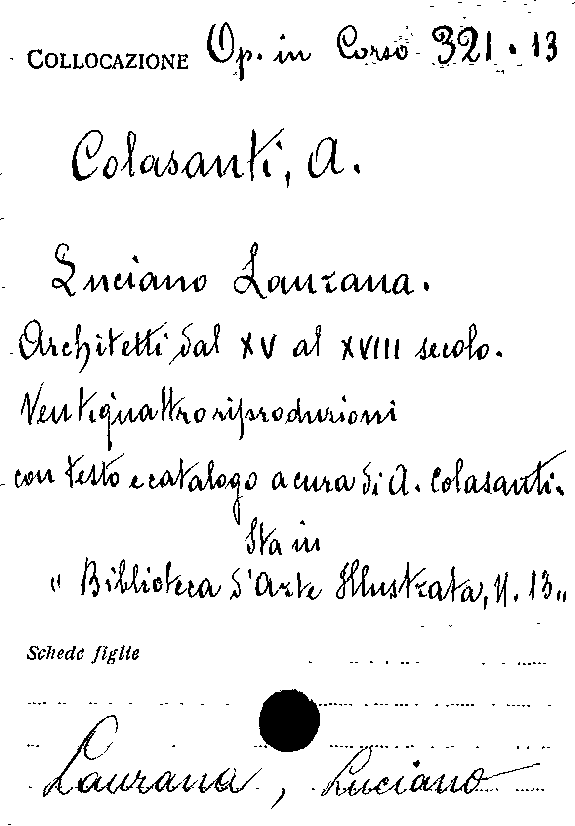 COLLOCAZIONE Op. in Corso 321.13
Colasanti, A.
Luciano Laurana.
Architetti dal XV al XVIII secolo.
Ventiquattro riproduzioni
con testo e catalogo a cura di A. Colasanti.
Sta in
"Biblioteca d'Arte Illustrata, N. 13"
Schede figlie
Laurana, Luciano